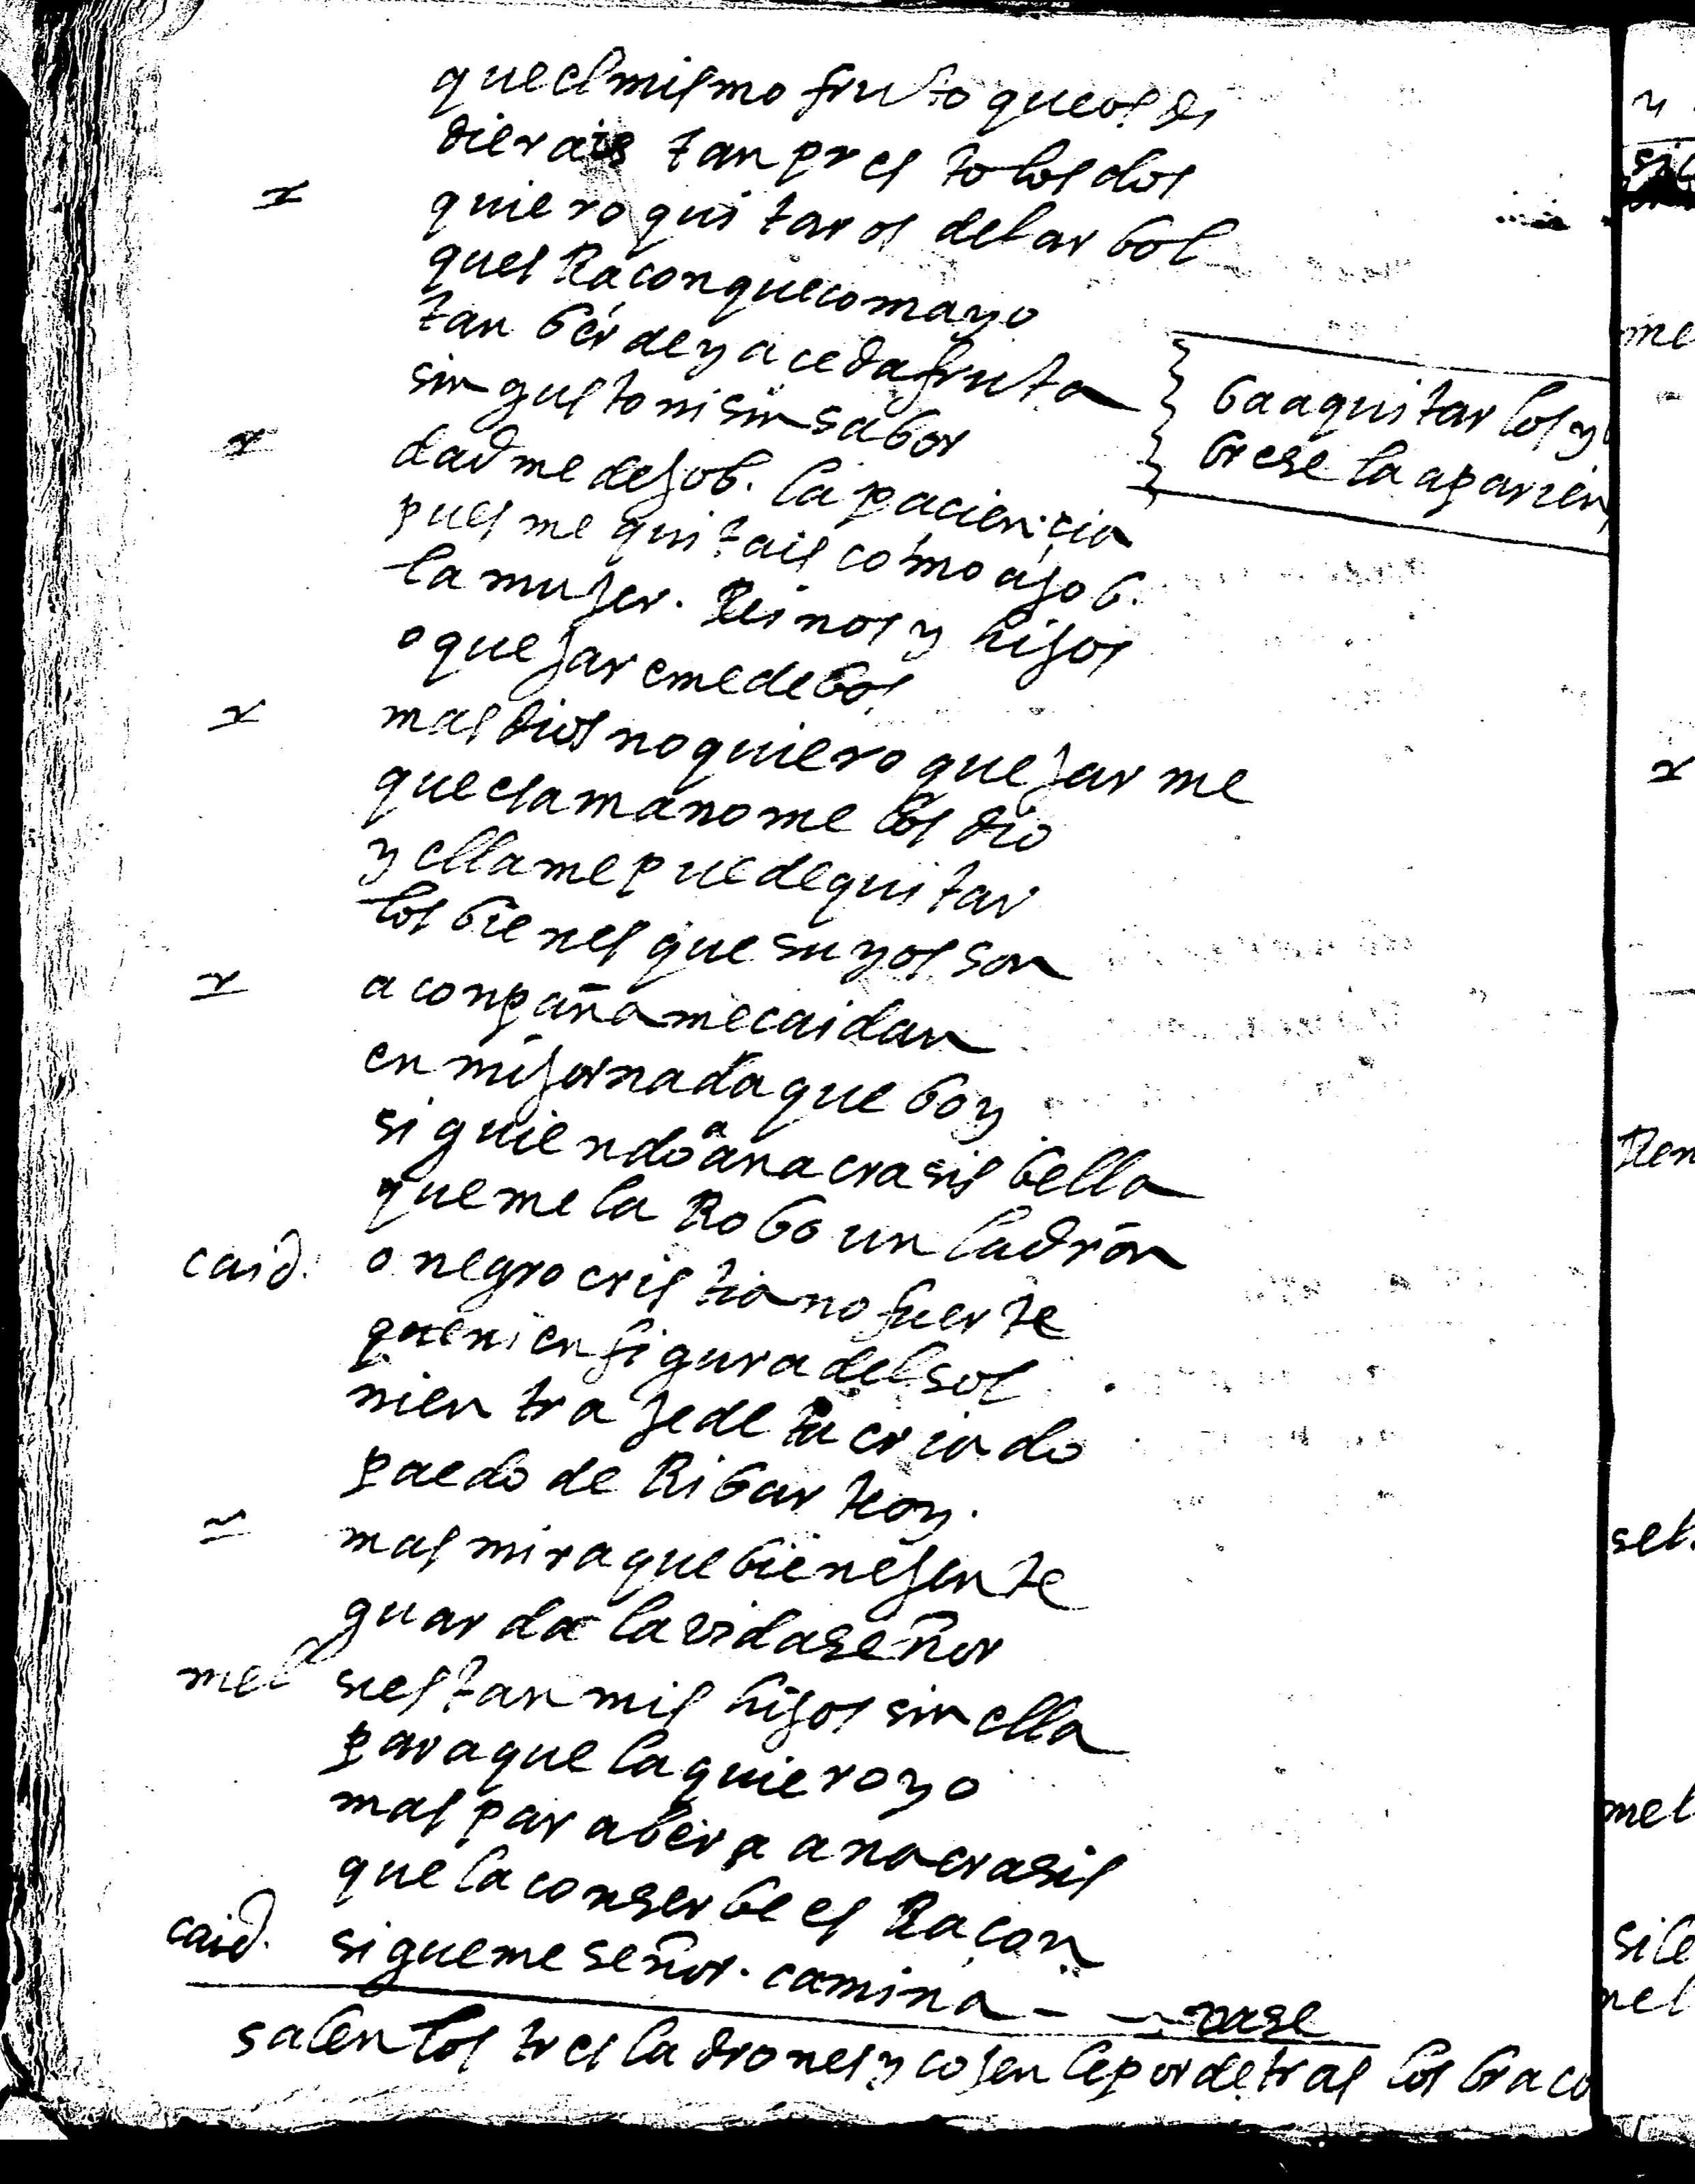 que el mismo fruto que os di
dierais tan presto los dos
x quiero quitar os del arbol
ques Racon que como yo
tan berde y aceda fruta
sin gusto ni sin sabor
ba a quitar los y
brese la aparien
x dadme de job. la paciencia
pues me quitais como a job.
la mujer. Reinos y hijos
o quejar eme de bos
x mas dios no quiero quejar me
que esa mano me los dio
y ella me puede quitar
los bienes que suyos son
x aconpañame caidan
en mi jornada que boy
siguiendo a anacrasis bella
que me la Robo un ladron
caid. o negro cristiano fuerte
que ni en figura del sol
ni en traje de tu criado
puedo deRibar te oy.
mas mira que biene jente
guarda la vida señor
mel si estan mis hijos sin ella
para que la quiero yo
mas par a ber a anacrasis
que la conserbe es Racon
caid. sigueme señor. camina - - vase
salen los tres ladrones y cojen le por detras los braco